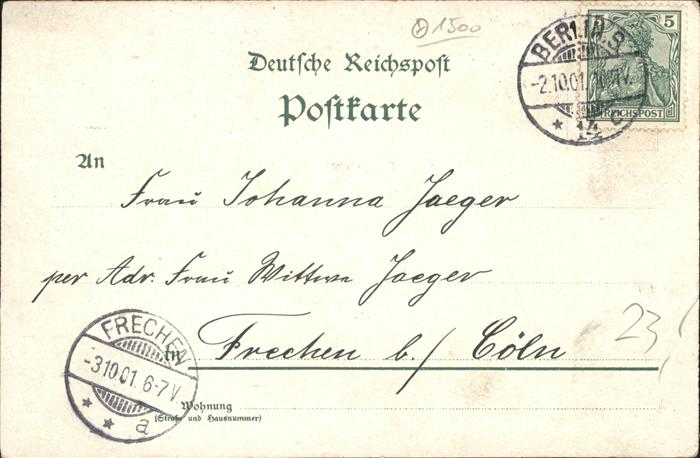 1500
5
BERLIN.S
-2.10.01.
* 14
REICHSPOST
Deutsche Reichspost
Postkarte
An
Frau Johanna Jaeger
per Adr. Frau Wittwe Jaeger
in Frechen b./ Cöln
23,
FRECHEN
-3.10.01. 6-7 V
* * a
Wohnung
(Straße und Hausnummer)